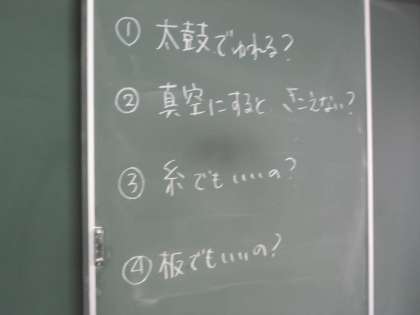 ① 太鼓でゆれる?
② 真空にすると きこえない?
③ 糸でもいいの?
④ 板でもいいの?